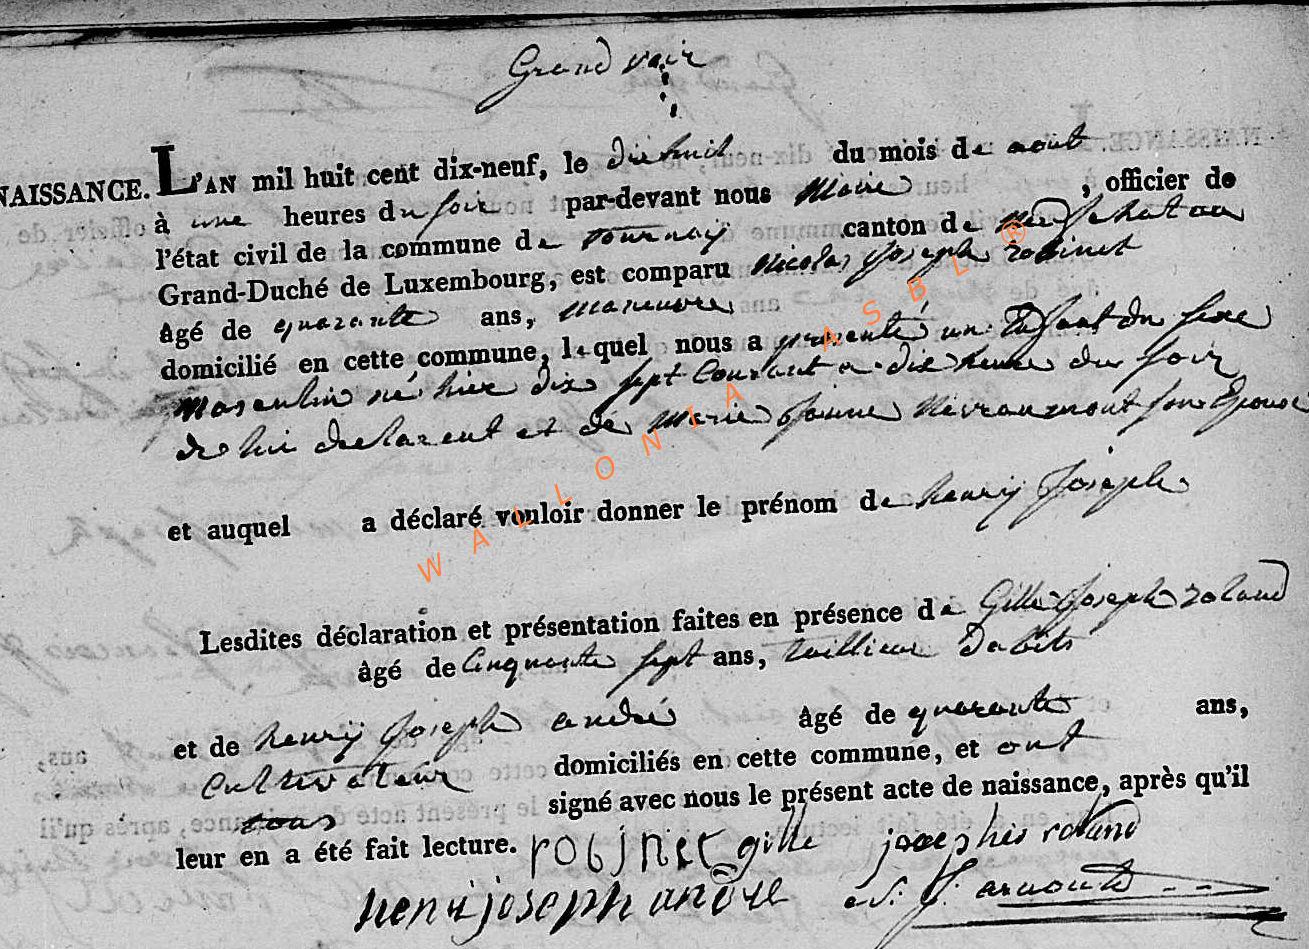 Grand voir
NAISSANCE. L'AN mil huit cent dix-neuf, le dixhuit du mois de aout
à une heures du soir par-devant nous Maire, officier de
l'état civil de la commune de tournay canton de neufchateau
Grand-Duché de Luxembourg, est comparu Nicolas Joseph robinet
âgé de quarante ans, maneuvre
domicilié en cette commune, lequel nous a presenté un Enfant du sexe
Masculin né hier dix sept Courant a dix heure du soir
de lui declarent et de Marie Jeanne Nevraumont son Epouse
et auquel a déclaré vouloir donner le prénom de henry Joseph
Lesdites déclaration et présentation faites en présence de Gille Joseph roland
âgé de Cinquante sept ans, tailleur Dabits
et de henry Joseph andré âgé de quarante ans,
Cultivateur domiciliés en cette commune, et ont
tous signé avec nous le présent acte de naissance, après qu'il
leur en a été fait lecture. robinet gille joseph roland
henri joseph andre J. arnould
WALLONIA ASBL ®